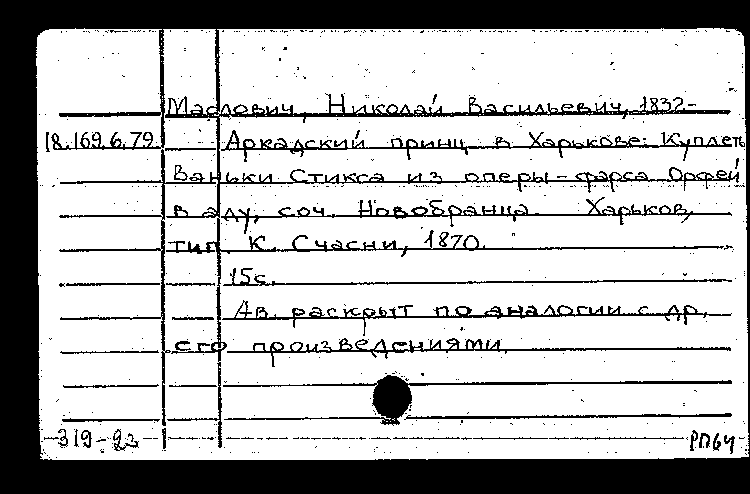 Маслович, Николай Васильевич, 1832-
18.169.6.79 Аркадский принц в Харькове: Куплеты
Ваньки Стикса из оперы-фарса Орфей
в аду, соч. Новобранца. Харьков,
тип. К. Счасни, 1870.
15с.
Ав. раскрыт по аналогии с др.
его произведениями.
319-23 РП64